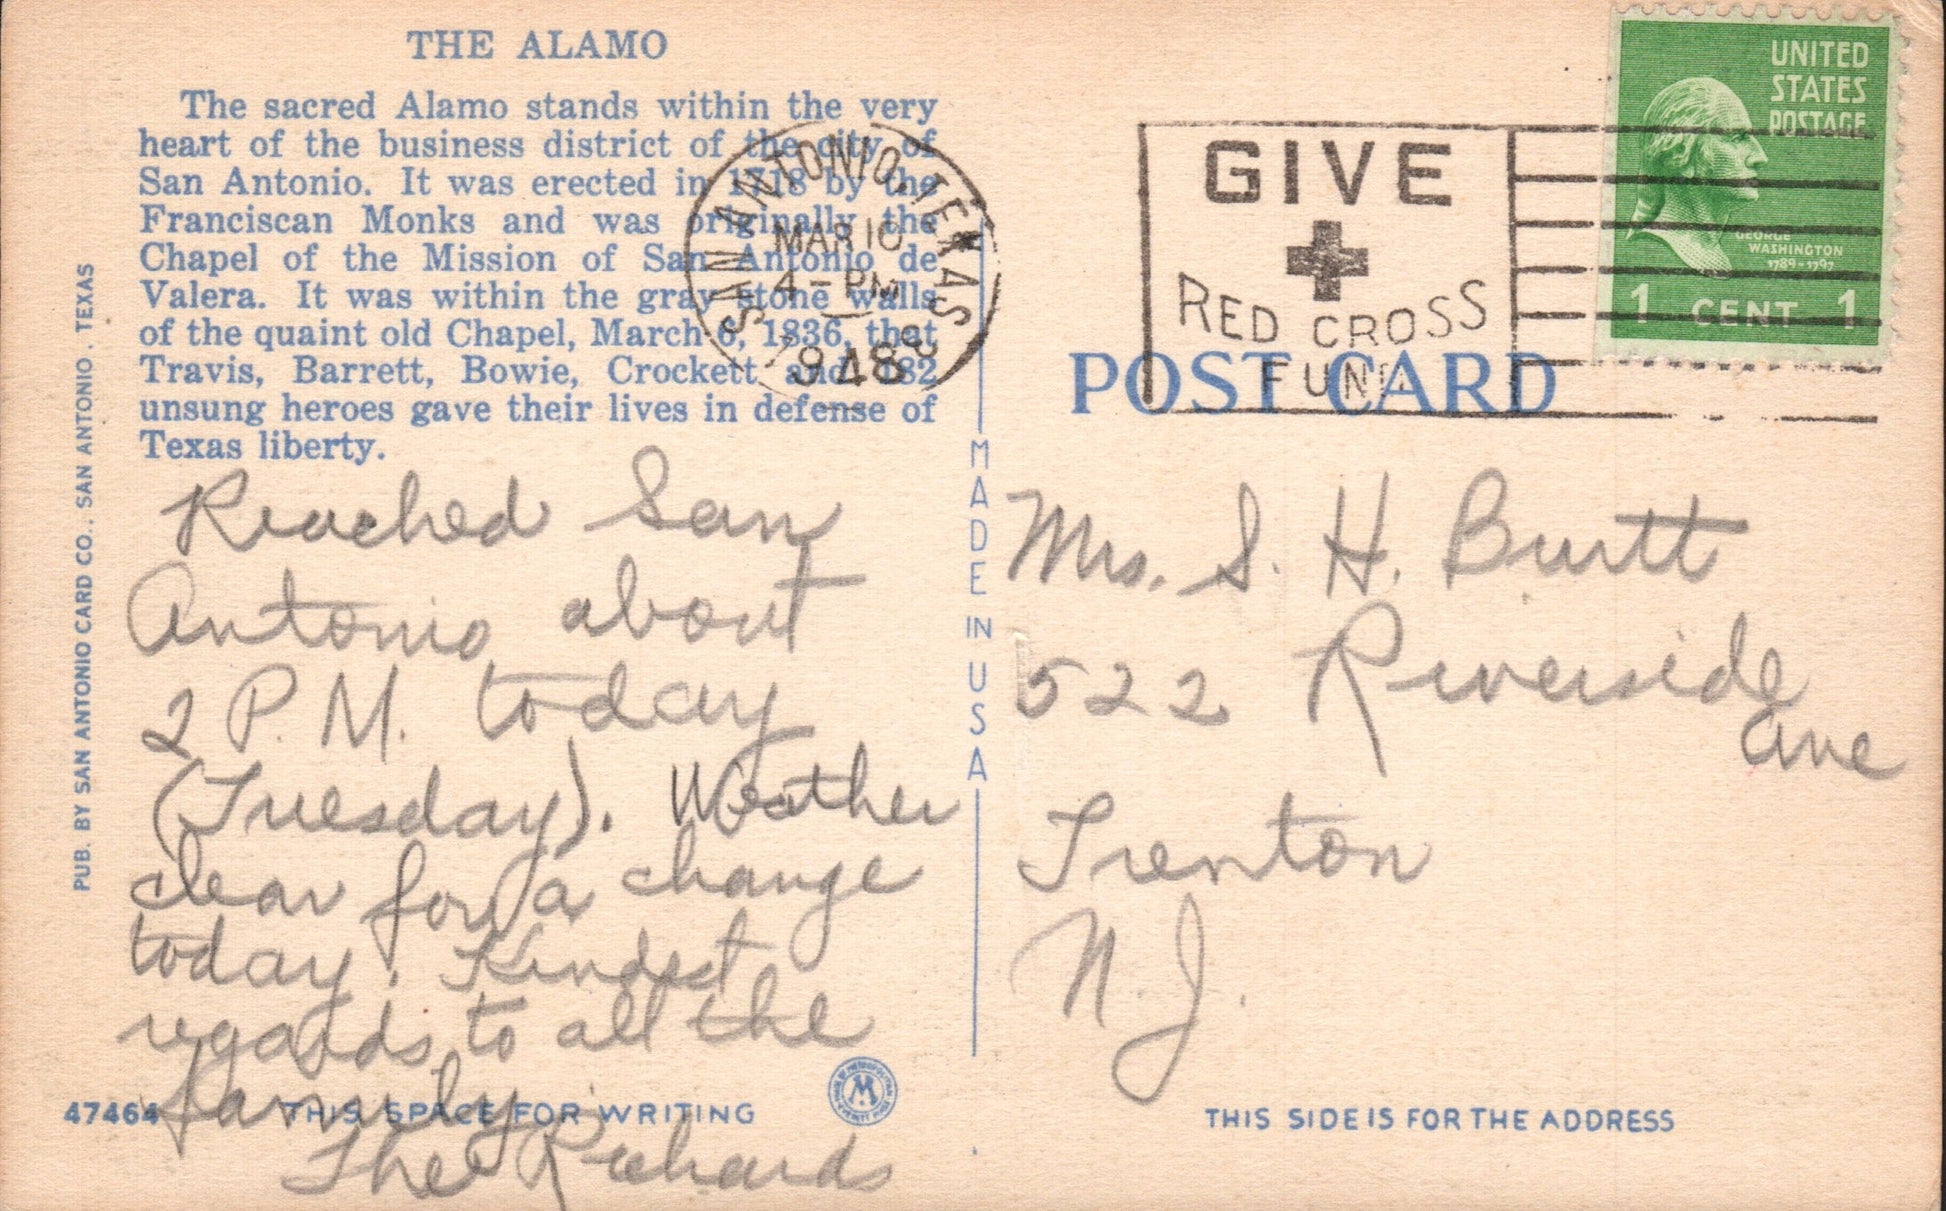 THE ALAMO
The sacred Alamo stands within the very
heart of the business district of the city of
San Antonio. It was erected in 1718 by the
Franciscan Monks and was originally the
Chapel of the Mission of San Antonio de
Valera. It was within the gray stone walls
of the quaint old Chapel, March 6, 1836, that
Travis, Barrett, Bowie, Crockett and 182
unsung heroes gave their lives in defense of
Texas liberty.
Reached San
Antonio about
2 P.M. today
(Tuesday). Weather
clear for a change
today. Kindest
regards to all the
family.
The Richards
47464
THIS SPACE FOR WRITING
PUB. BY SAN ANTONIO CARD CO., SAN ANTONIO, TEXAS
MADE IN USA
SAN ANTONIO, TEXAS
MAR 16
4-PM
1948
GIVE
RED CROSS
FUND
UNITED
STATES
POSTAGE
GEORGE
WASHINGTON
1789-1797
1 CENT 1
POST CARD
Mrs. S. H. Burtt
522 Riverside
Ave
Trenton
N.J.
THIS SIDE IS FOR THE ADDRESS